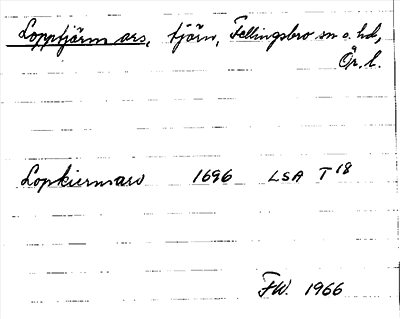 Lopptjärnars, tjärn, Fellingsbro sn o. hd,
Ör. l.
Lopkiernars 1696 LSA T 18
FW. 1966